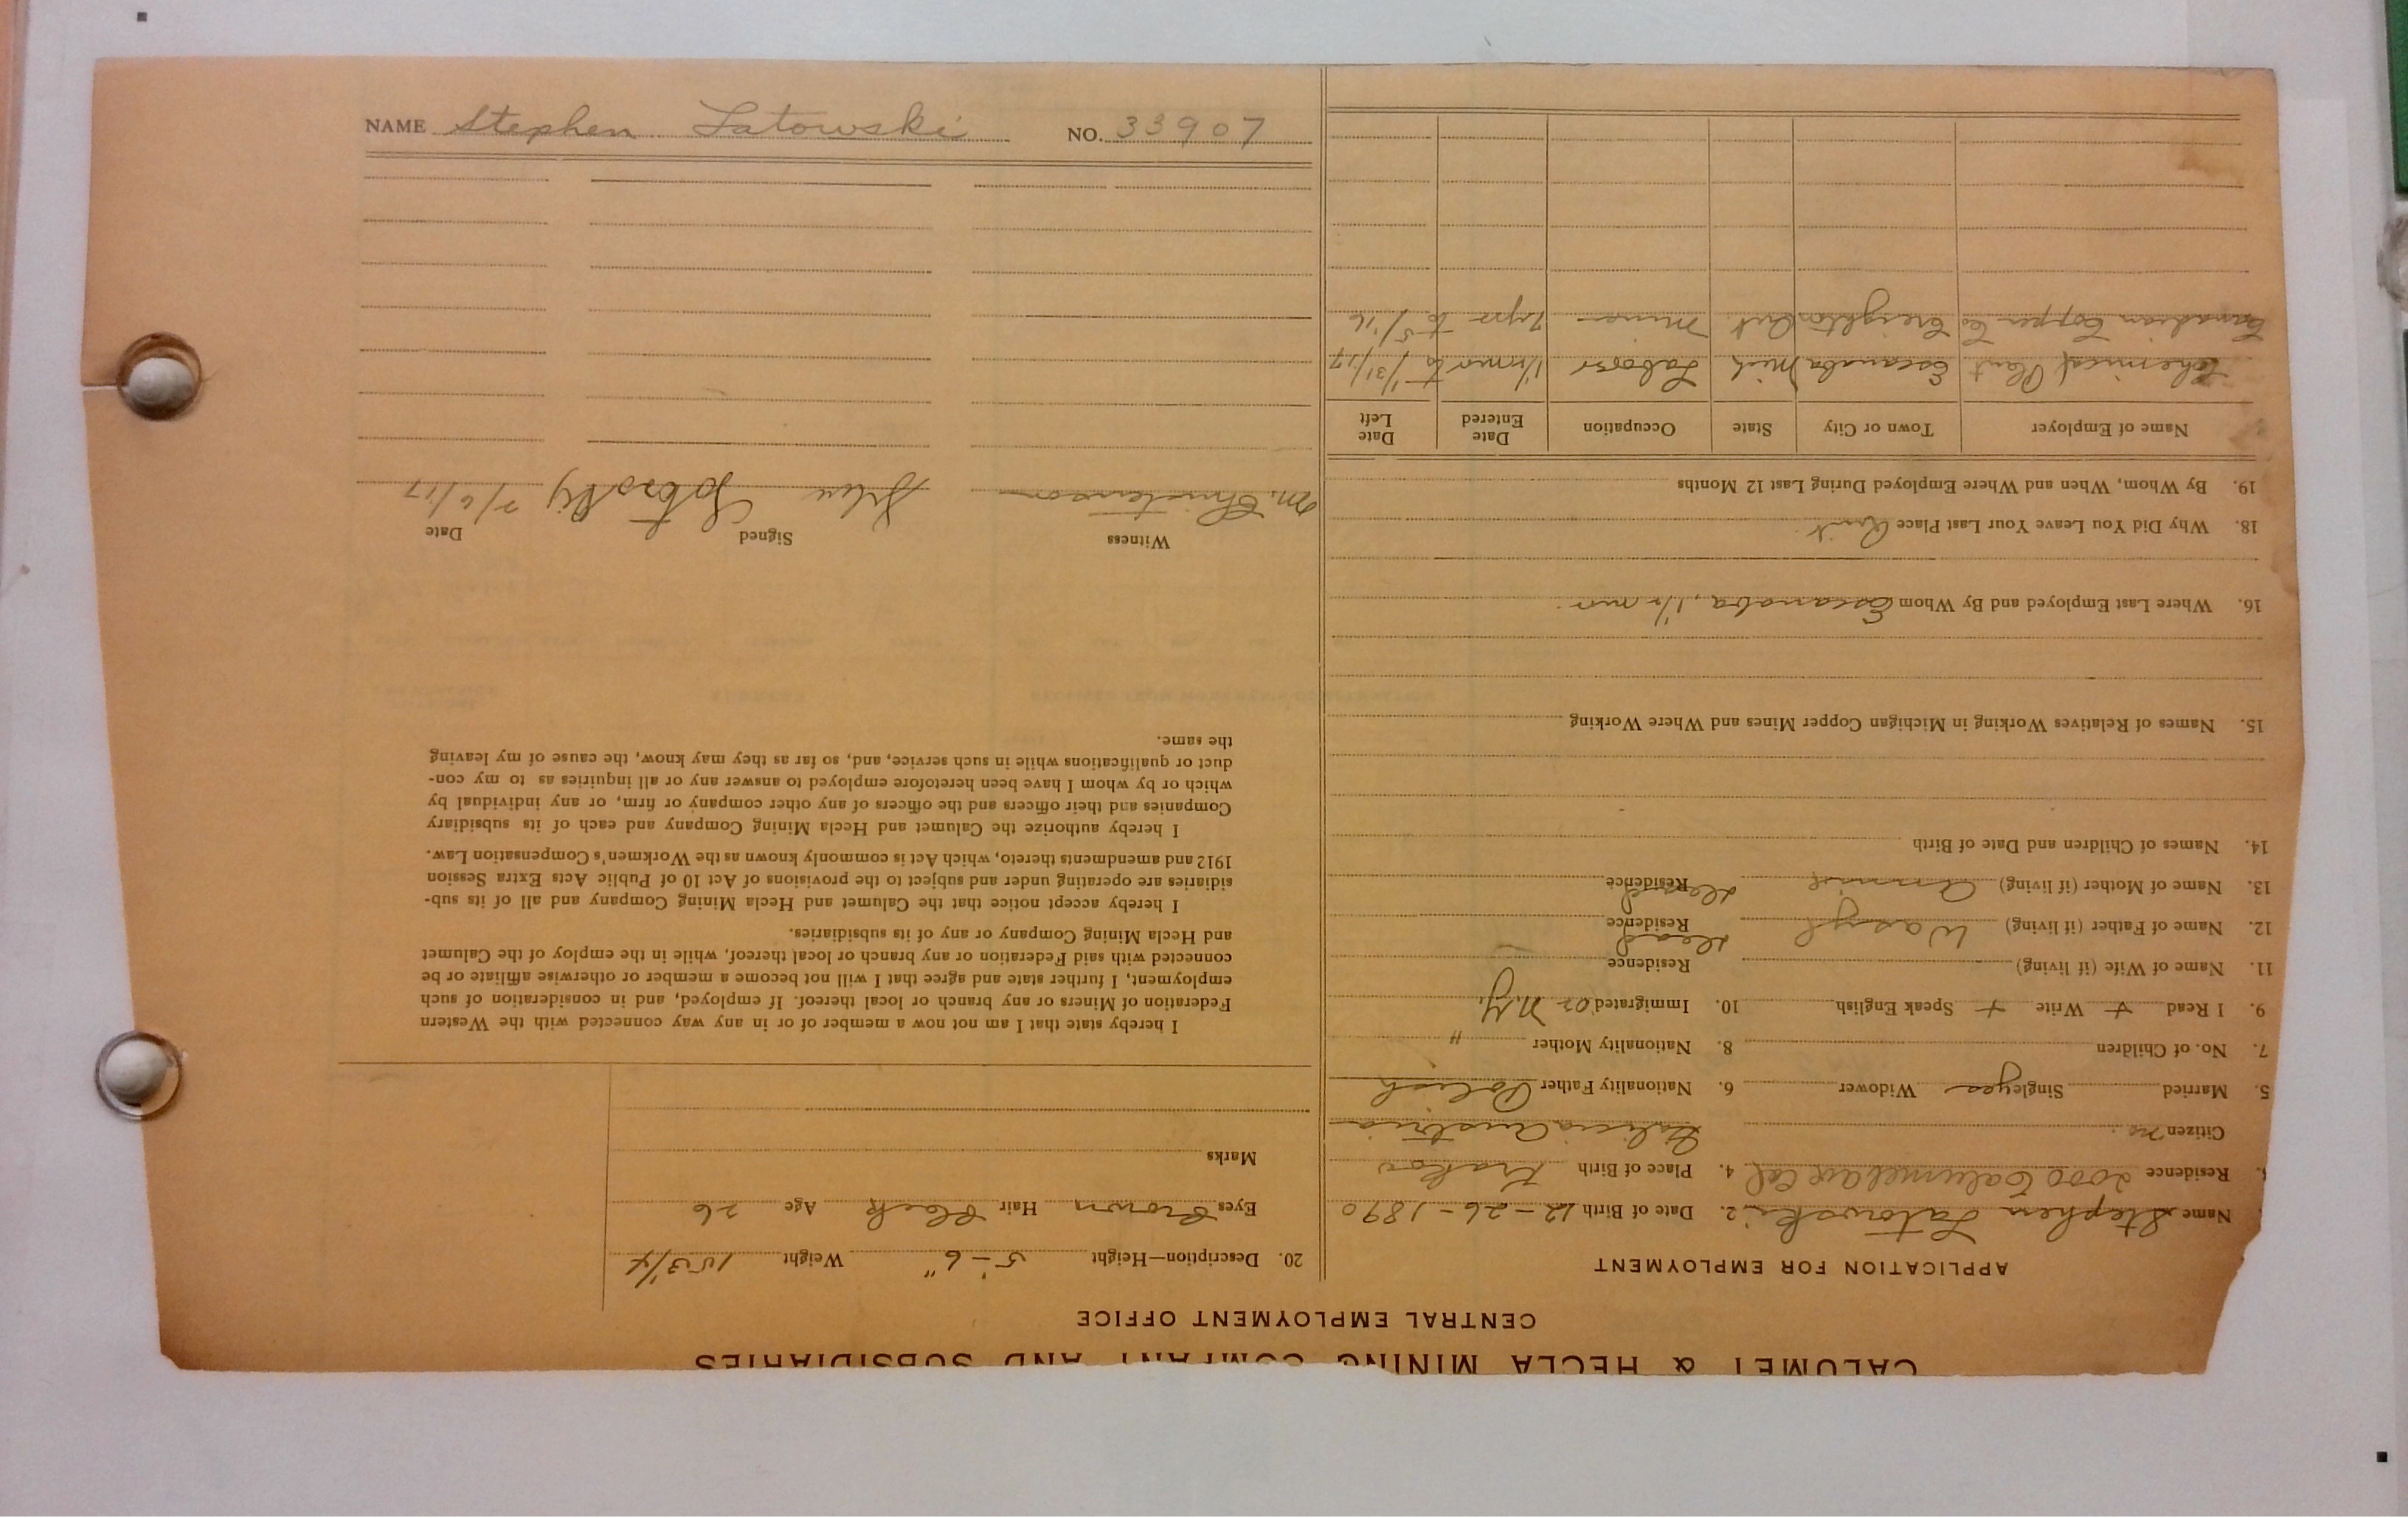 CALUMET & HECLA MINING COMPANY AND SUBSIDIARIES
CENTRAL EMPLOYMENT OFFICE
APPLICATION FOR EMPLOYMENT
Name Stephen Latowski 2. Date of Birth 12-26-1890
Residence 2000 Calumet Ave Cal 4. Place of Birth Krakow
Citizen no. Galicia Austria
5. Married Single yes Widower 6. Nationality Father Polish
7. No. of Children 8. Nationality Mother "
9. I Read + Write + Speak English 10. Immigrated N.Y.
11. Name of Wife (if living) Residence
12. Name of Father (if living) Wasyl Residence dead
13. Name of Mother (if living) Residence dead
14. Names of Children and Date of Birth
15. Names of Relatives Working in Michigan Copper Mines and Where Working
16. Where Last Employed and By Whom Escanaba, 1½ mos.
18. Why Did You Leave Your Last Place Quit
19. By Whom, When and Where Employed During Last 12 Months
Name of Employer Town or City State Occupation Date Entered Date Left
Chemical Plant Escanaba Mich Laborer 1½ mos to 1/31/17
Canadian Copper Co Creighton Ont. Miner 2 yrs to 5/16
20. Description—Height 5-6" Weight 153¼
Eyes Brown Hair Black Age 26
Marks
I hereby state that I am not now a member of or in any way connected with the Western
Federation of Miners or any branch or local thereof. If employed, and in consideration of such
employment, I further state and agree that I will not become a member or otherwise affiliate or be
connected with said Federation or any branch or local thereof, while in the employ of the Calumet
and Hecla Mining Company or any of its subsidiaries.
I hereby accept notice that the Calumet and Hecla Mining Company and all of its sub-
sidiaries are operating under and subject to the provisions of Act 10 of Public Acts Extra Session
1912 and amendments thereto, which Act is commonly known as the Workmen's Compensation Law.
I hereby authorize the Calumet and Hecla Mining Company and each of its subsidiary
Companies and their officers and the officers of any other company or firm, or any individual by
which or by whom I have been heretofore employed to answer any or all inquiries as to my con-
duct or qualifications while in such service, and, so far as they may know, the cause of my leaving
the same.
Witness Signed Date
M. Christenson 2/6/17
NAME Stephen Latowski NO. 33907